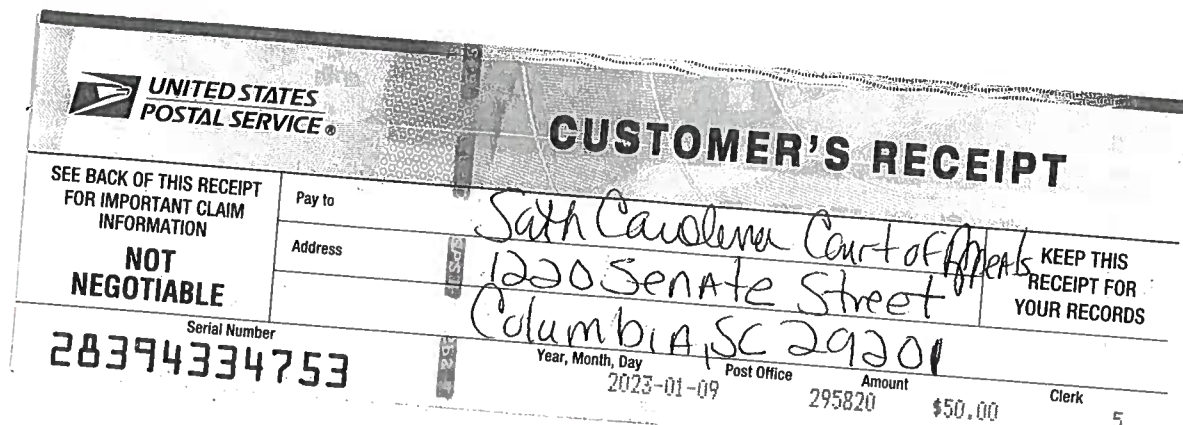 UNITED STATES
POSTAL SERVICE®
CUSTOMER'S RECEIPT
SEE BACK OF THIS RECEIPT
FOR IMPORTANT CLAIM
INFORMATION
NOT
NEGOTIABLE
Pay to
South Carolina Court of Appeals
Address
1220 Senate Street
Columbia, SC 29201
KEEP THIS
RECEIPT FOR
YOUR RECORDS
Serial Number
28394334753
Year, Month, Day
2023-01-09
Post Office
295820
Amount
$50.00
Clerk
5